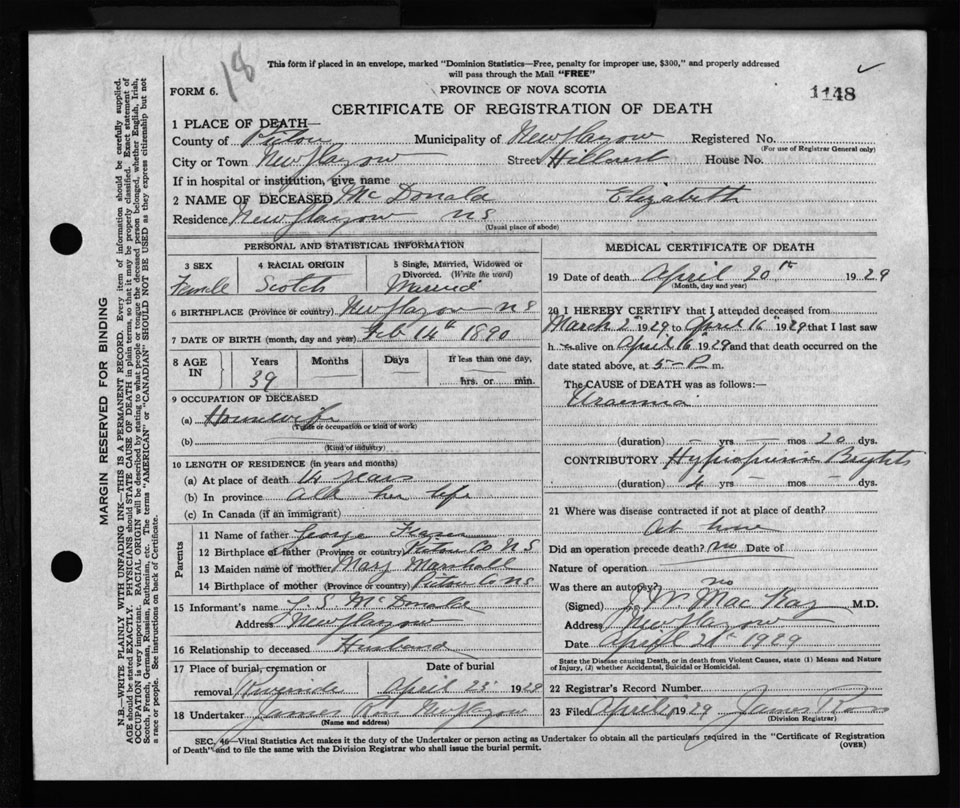 18
This form if placed in an envelope, marked "Dominion Statistics—Free, penalty for improper use, $300," and properly addressed
will pass through the Mail "FREE"
FORM 6.
PROVINCE OF NOVA SCOTIA
1148
CERTIFICATE OF REGISTRATION OF DEATH
1 PLACE OF DEATH—
County of Pictou Municipality of New Glasgow Registered No.
(For use of Registrar General only)
City or Town New Glasgow Street Hillcrest House No.
If in hospital or institution, give name
2 NAME OF DECEASED McDonald Elizabeth
Residence New Glasgow NS
(Usual place of abode)
PERSONAL AND STATISTICAL INFORMATION
3 SEX 4 RACIAL ORIGIN 5 Single, Married, Widowed or
Divorced. (Write the word)
Female Scotch Married
6 BIRTHPLACE (Province or country) New Glasgow NS
7 DATE OF BIRTH (month, day and year) Feb 14th 1890
8 AGE IN Years Months Days If less than one day,
39 hrs. or min.
9 OCCUPATION OF DECEASED
(a) Housewife
(Trade or occupation or kind of work)
(b)
(Kind of industry)
10 LENGTH OF RESIDENCE (in years and months)
(a) At place of death 14 years
(b) In province all her life
(c) In Canada (if an immigrant)
Parents
11 Name of father George
12 Birthplace of father (Province or country) Pictou Co NS
13 Maiden name of mother Mary Marshall
14 Birthplace of mother (Province or country) Pictou Co NS
15 Informant's name S McDonald
Address New Glasgow
16 Relationship to deceased Husband
17 Place of burial, cremation or Date of burial
removal Riverside April 23 1929
18 Undertaker James Ross New Glasgow
(Name and address)
MEDICAL CERTIFICATE OF DEATH
19 Date of death April 20th 1929
(Month, day and year)
20 I HEREBY CERTIFY that I attended deceased from
March 2nd 1929 to April 16th 1929 that I last saw
h alive on April 16th 1929 and that death occurred on the
date stated above, at 5 — P m.
The CAUSE of DEATH was as follows:—
Uraemia
(duration) — yrs — mos 20 dys.
CONTRIBUTORY Brights
(duration) 4 yrs — mos — dys.
21 Where was disease contracted if not at place of death?
At home
Did an operation precede death? no Date of
Nature of operation
Was there an autopsy? no
(Signed) MacKay M.D.
Address New Glasgow
Date April 1929
State the Disease causing Death, or in death from Violent Causes, state (1) Means and Nature
of Injury, (2) whether Accidental, Suicidal or Homicidal.
22 Registrar's Record Number
23 Filed April 1929 James Ross
(Division Registrar)
SEC. 46—Vital Statistics Act makes it the duty of the Undertaker or person acting as Undertaker to obtain all the particulars required in the "Certificate of Registration
of Death" and to file the same with the Division Registrar who shall issue the burial permit.
(OVER)
MARGIN RESERVED FOR BINDING
N.B.—WRITE PLAINLY WITH UNFADING INK—THIS IS A PERMANENT RECORD. Every item of information should be carefully supplied.
AGE should be stated EXACTLY. PHYSICIANS should STATE CAUSE OF DEATH in plain terms, so that it may be properly classified. Exact statement of
OCCUPATION is very important. RACIAL ORIGIN will be described by stating to what people or tongue the deceased person belonged, whether English, Irish,
Scotch, French, German, Russian, Ruthenian, etc. The terms "AMERICAN" or "CANADIAN" SHOULD NOT BE USED as they express citizenship but not
a race or people. See instructions on back of Certificate.